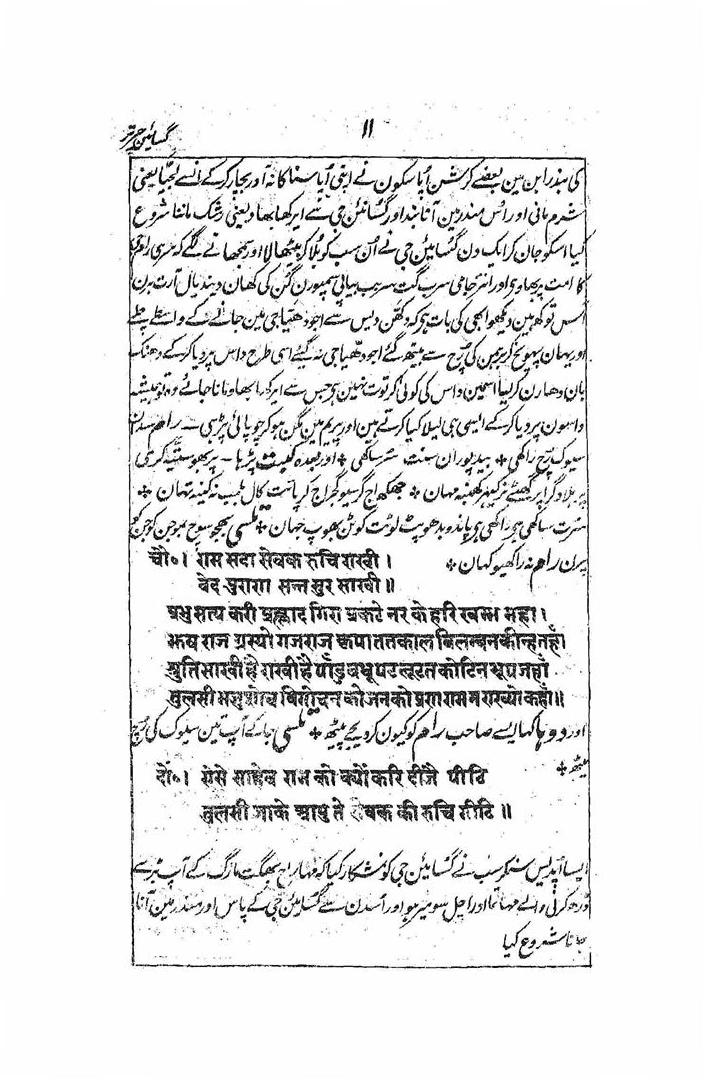 گسائین چرتر
۱۱
کی مندر این مین بعضے کرشن اُپاسکون نے اپنی اُپاسنا کا نہ آور بچار کرکے انسے لجّیا یعنی
شرم مانی اور اُس مندر مین آنا بند اور گسائین جی سے ایرکھا بھاو یعنی رشک ماننا شروع
کیا اسکو جان کر ایک دن گسائین جی نے اُن سب کو بلا کر بیٹھالا اور سمجھانے لگے کہ سری رام جی
کا امت پربھاو ہی اور انترجامی سرب گت سرب بیاپی سمپورن گن کی کھان دیندیال آرت ہرن
اس توکھ ہین دیکھو ابھی کی بات ہی کہ دکھن دیس سے اجودھیا جی مین جانے کے واسطے چلے
اور یہان پہونچ کر برہمن کی رُچ سے بیٹھ گئے اجودھیا جی نہ گئے اسی طرح داس پر دیا کرکے دھنک
بان دھارن کر لیا اسمین داس کی کوئی کرتوت نہین ہی جس سے ایرکھا بھاو مانا جائے وہ تو ہمیشہ
داسون پر دیا کرکے ایسی ہی لیلا کیا کرتے ہین اور پریم مین مگن ہو کر چوپائی پڑھی ـ رام سدا
سیوک رُچ راکھی * بید پوران سنت سر ساکھی * اور بعدہ کبت پڑھا ـ پربھو ستیہ کری
پرہلاد گرا پرگھٹے نر کیہر کھنبہ مہان * جھکھ راج گرسیو گجراج کرپا تت کال بلمب نہ کینہ تہان *
سرت ساکھی ہی راکھی ہی پانڈو بدھو پٹ لوٹت کوٹن بھوپ جہان * تلسی بھجو سوچ بموچن کو جن کو
پرن رام نہ راکھیو کہان *
चौ० । राम सदा सेवक रुचि राखी ।
वेद पुराण सन्त सुर साखी ॥
प्रभु सत्य करी प्रह्लाद गिरा प्रकटे नर केहरि खम्भ महा ।
झख राज ग्रस्यो गजराज कृपा ततकाल बिलम्बन कीन्ह तहाँ
श्रुति साखी है राखी है पाँडु बधू पट लूटत कोटिन भूप जहाँ
तुलसी भजु शोच बिमोचन को जन को प्रण राम न राख्यो कहाँ ॥
اور دوہا کہا ایسے صاحب رام کو کیون کر دیجے پیٹھ * تلسی جاکے آپ تین سیوک کی رُچ
میٹھ *
दो० । ऐसे साहेब राम को क्यों करि दीजै पीठि
तुलसी जाके आपु ते सेवक की रुचि मीठि ॥
ایسا اُپدیس سنکر سب نے گسائین جی کو نمشکار کیا کہ مہاراج بھگت مارگ کے آپ بڑے
دڑھ کرنے والے مہاتما اور اچل سومیرو ہو اور اُسدن سے گسائین جی کے پاس اور مندر مین آنا
جانا شروع کیا